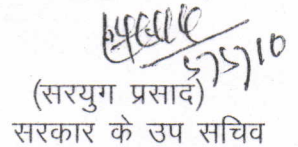 5/5/10
(सरयुग प्रसाद)
सरकार के उप सचिव